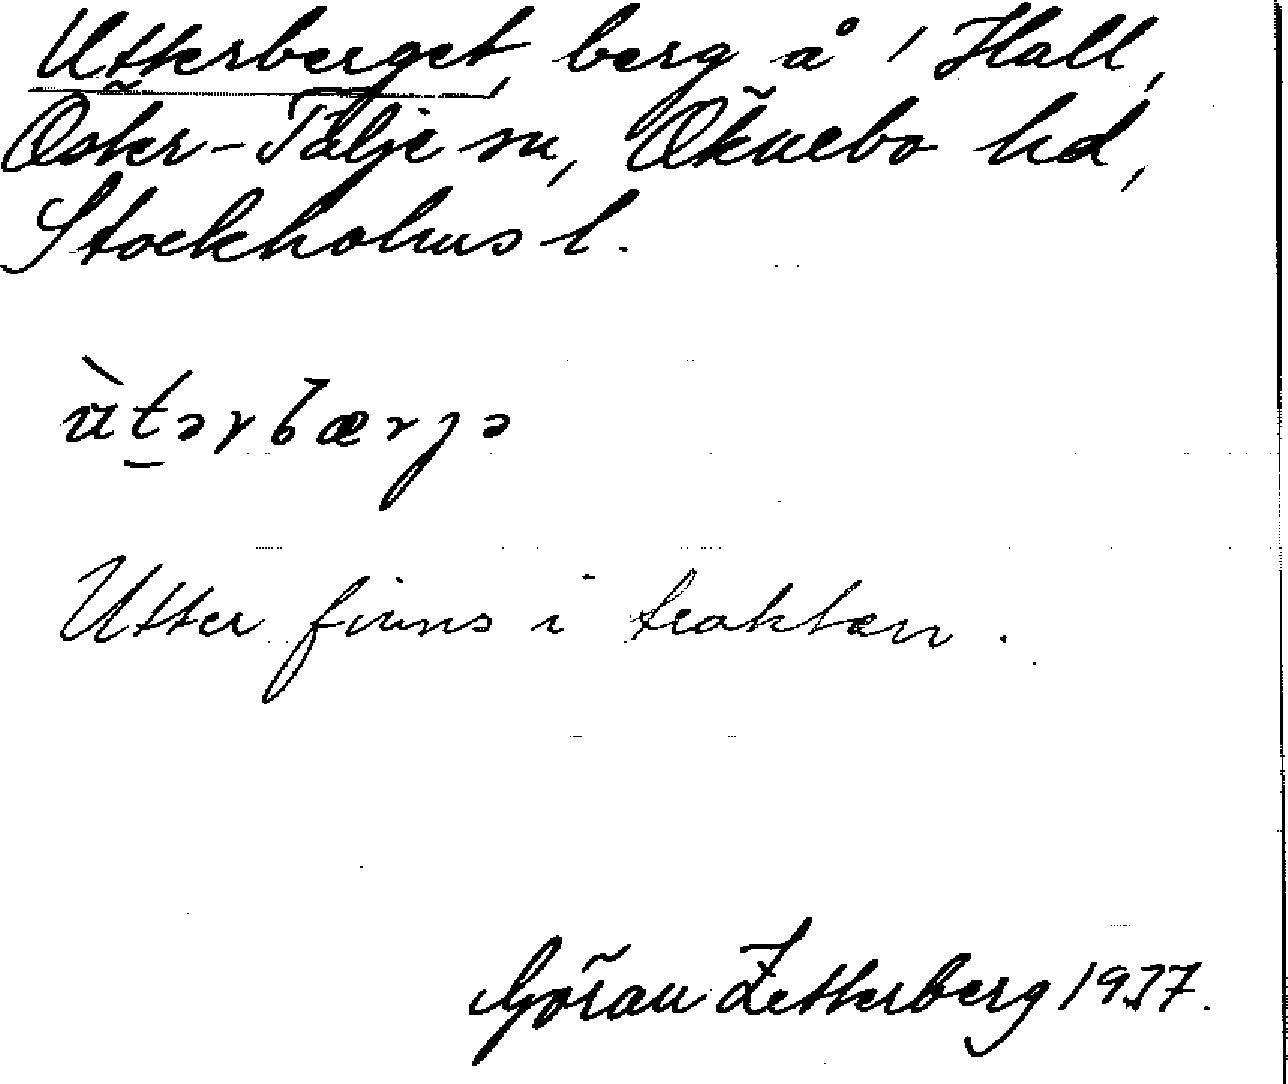 Utterberget, berg å i Hall,
Öster-Tälje sn, Öknebo hd,
Stockholms l.
ùt̠ərbærjə
Utter finns i trakten.
Göran Zetterberg 1937.